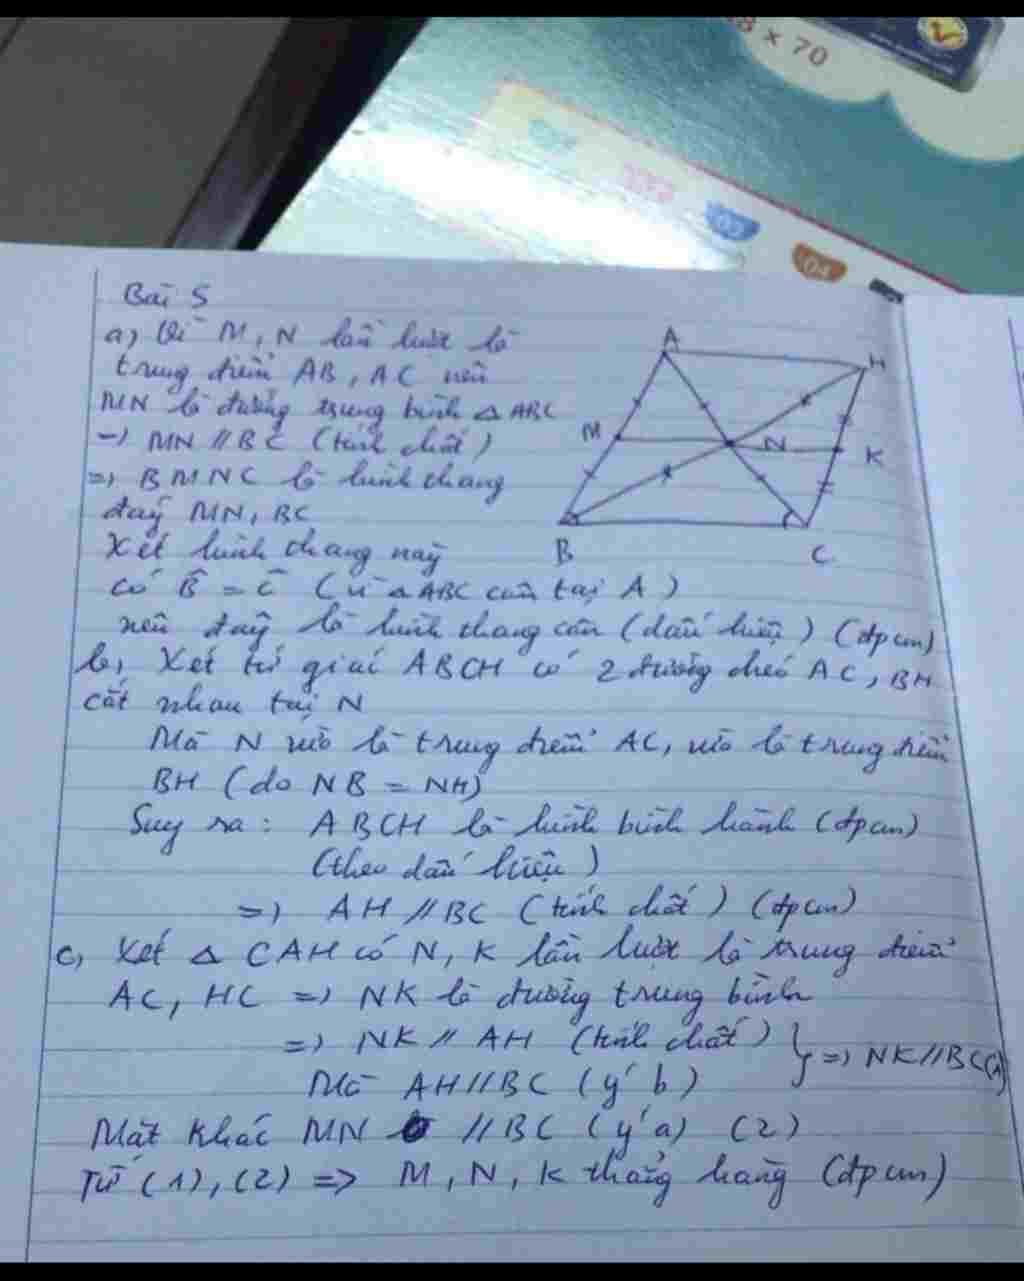 48 × 70
03
04
Bài 5
a, Vì M, N lần lượt là
trung điểm AB, AC nên
MN là đường trung bình △ ABC
=> MN // BC (tính chất)
=> BMNC là hình thang
đáy MN, BC
Xét hình thang này
có B̂ = Ĉ (vì △ABC cân tại A)
nên đây là hình thang cân (dấu hiệu) (đpcm)
b, Xét tứ giác ABCH có 2 đường chéo AC, BH
cắt nhau tại N
Mà N vừa là trung điểm AC, vừa là trung điểm
BH (do NB = NH)
Suy ra: ABCH là hình bình hành (đpcm)
(theo dấu hiệu)
=> AH // BC (tính chất) (đpcm)
c, Xét △ CAH có N, K lần lượt là trung điểm
AC, HC => NK là đường trung bình
=> NK // AH (tính chất)
Mà AH // BC (ý b)
} => NK // BC (1)
Mặt khác MN // BC (ý a) (2)
Từ (1), (2) => M, N, K thẳng hàng (đpcm)
A
H
M
N
K
B
C